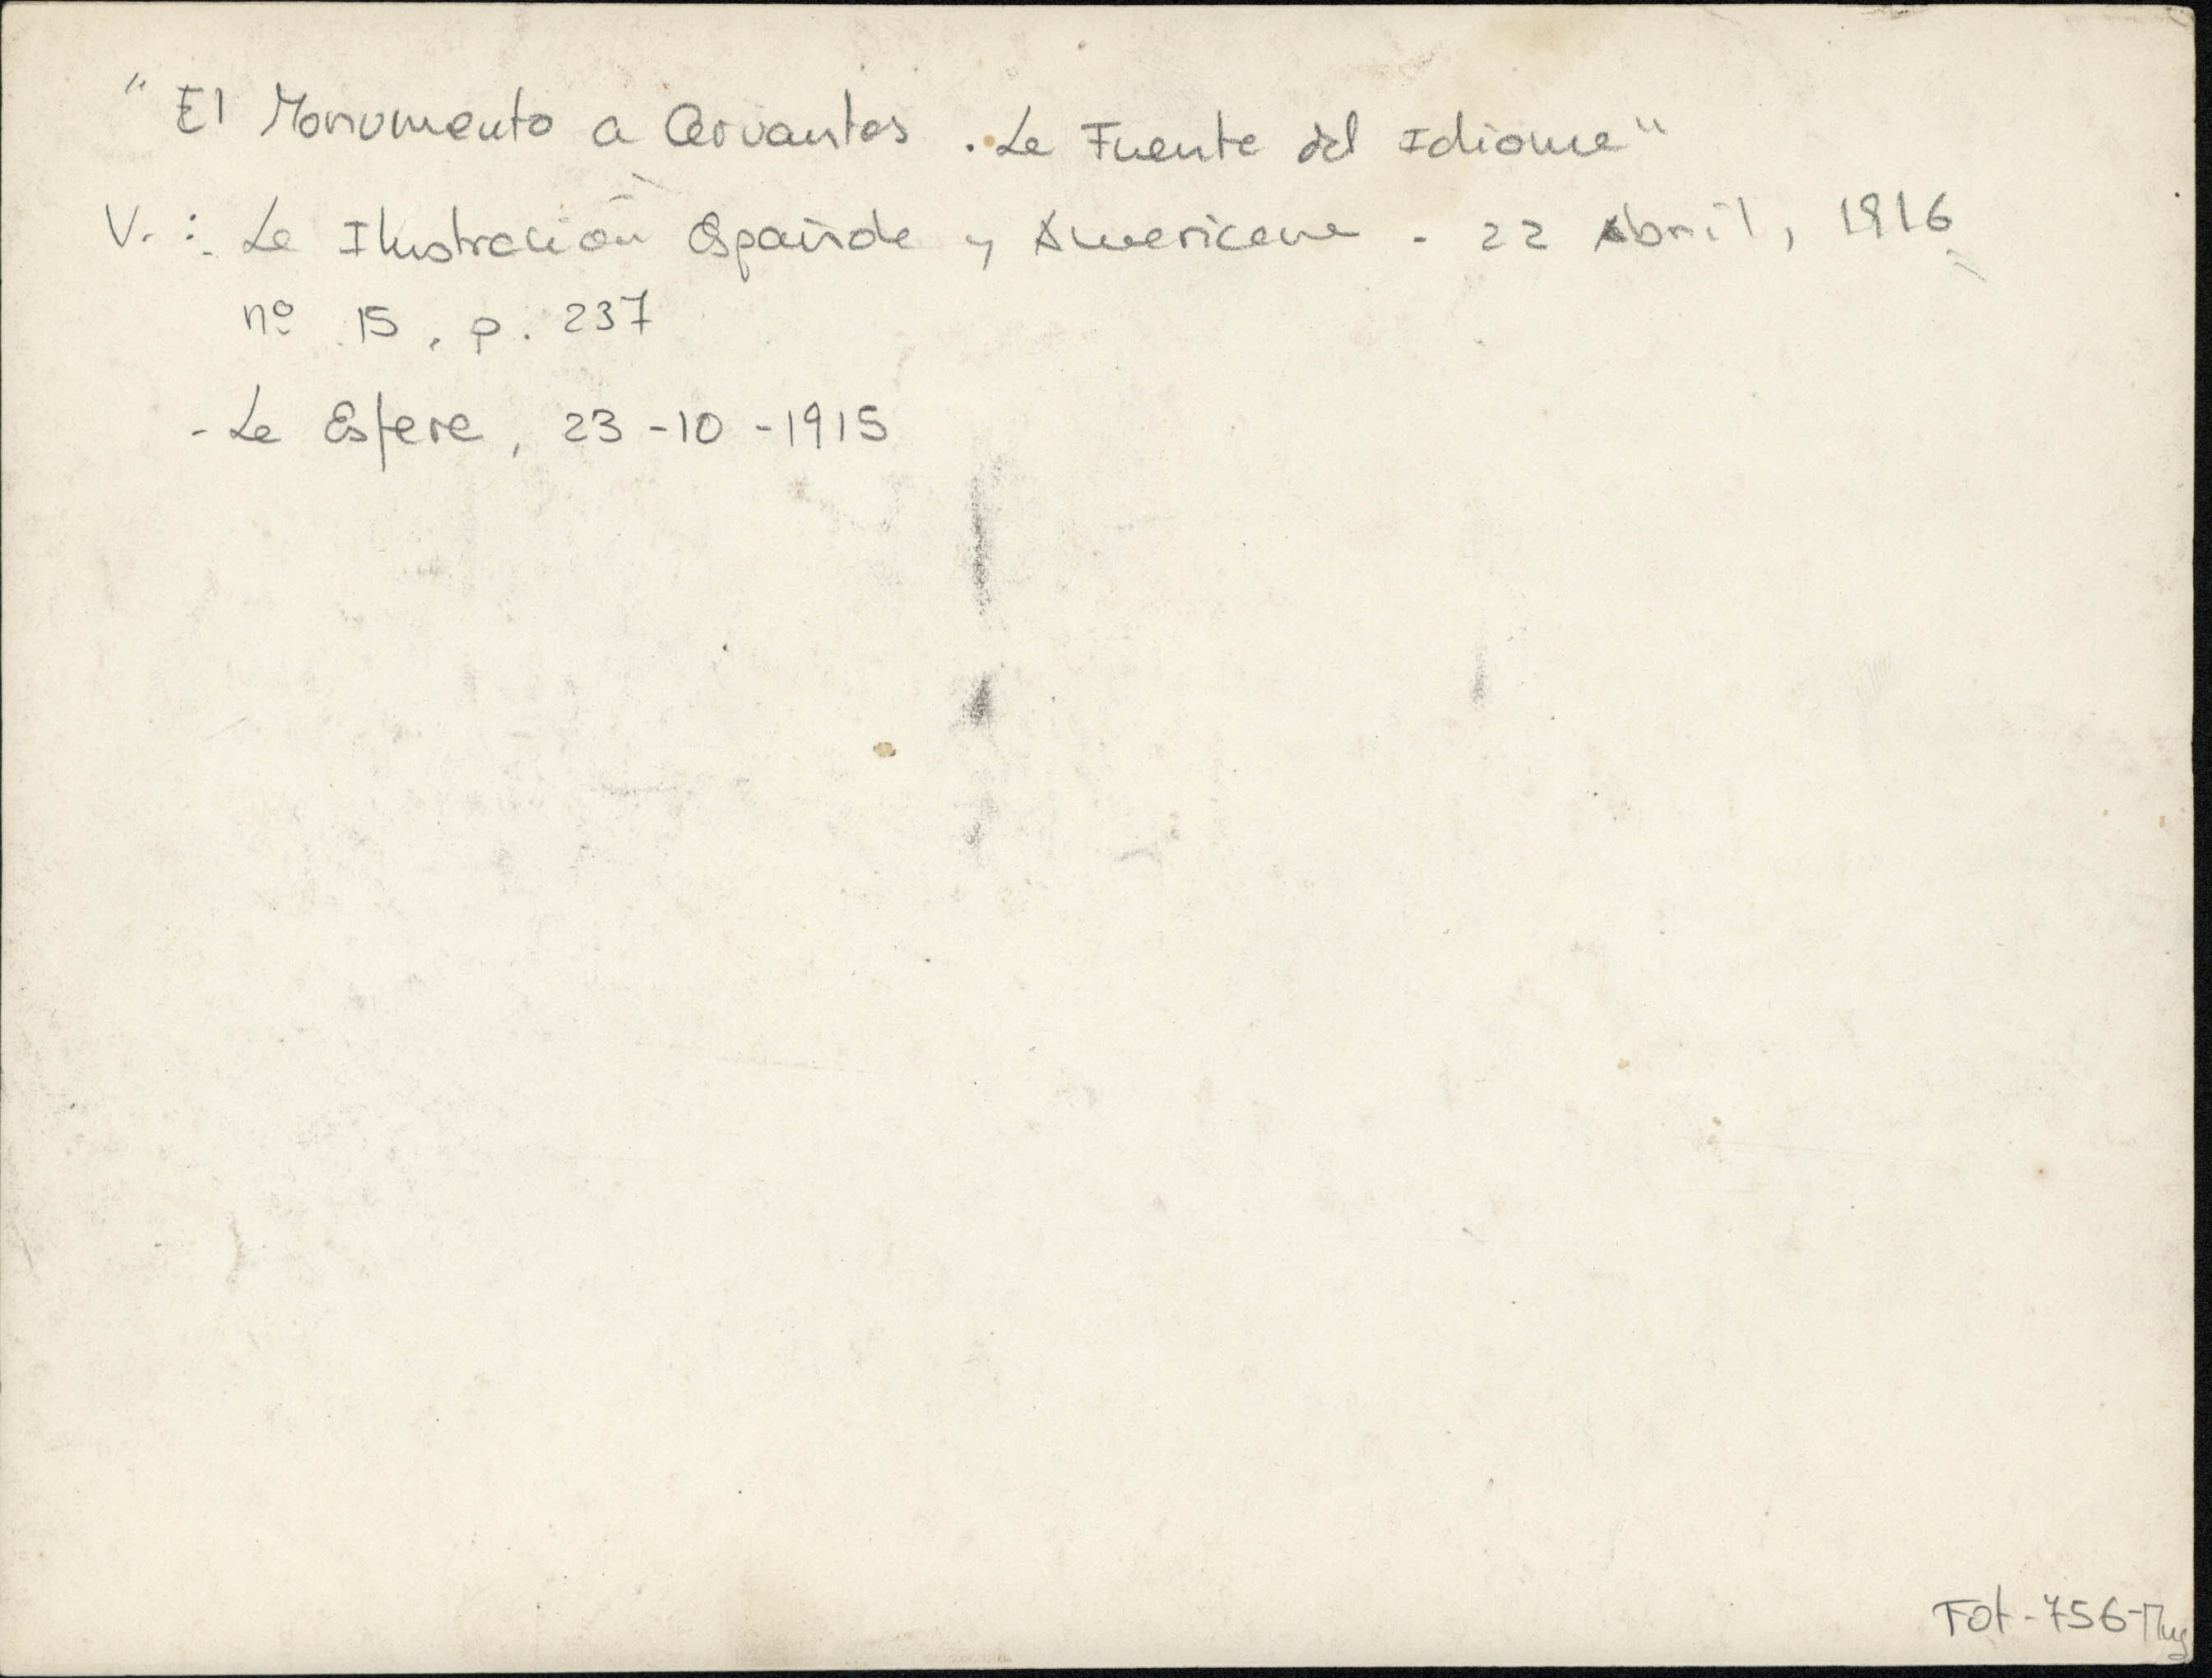 "El Monumento a Cervantes . La Fuente del Idioma"
V. : La Ilustración Española y Americana - 22 Abril, 1916
nº 15, p. 237
- La Esfera, 23-10-1915
Fot-756-Mug